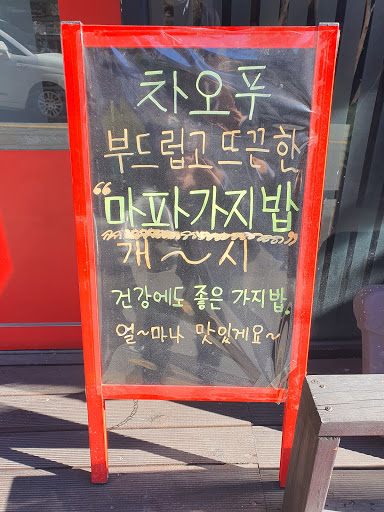 차오푸
부드럽고 뜨끈한
“마파가지밥”
개~시
건강에도 좋은 가지밥,
얼~마나 맛있게요~